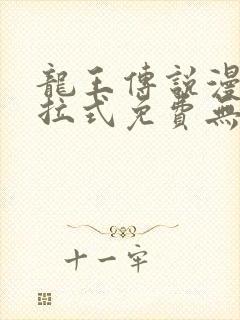 龍王傳說漫
拉式免費無
十一牢